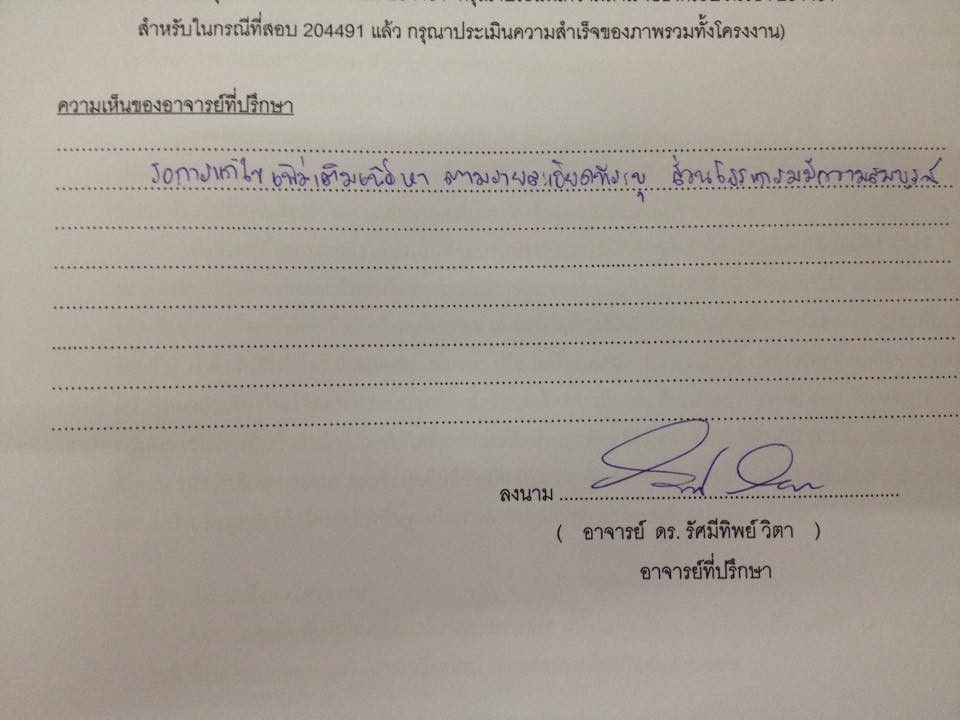 สำหรับในกรณีที่สอบ 204491 แล้ว กรุณาประเมินความสำเร็จของภาพรวมทั้งโครงงาน)
ความเห็นของอาจารย์ที่ปรึกษา
รอการแก้ไข เพิ่มเติมเนื้อหา ตามรายละเอียดที่ระบุ ส่วนโปรแกรมมีความสมบูรณ์
ลงนาม
( อาจารย์ ดร. รัศมีทิพย์ วิตา )
อาจารย์ที่ปรึกษา